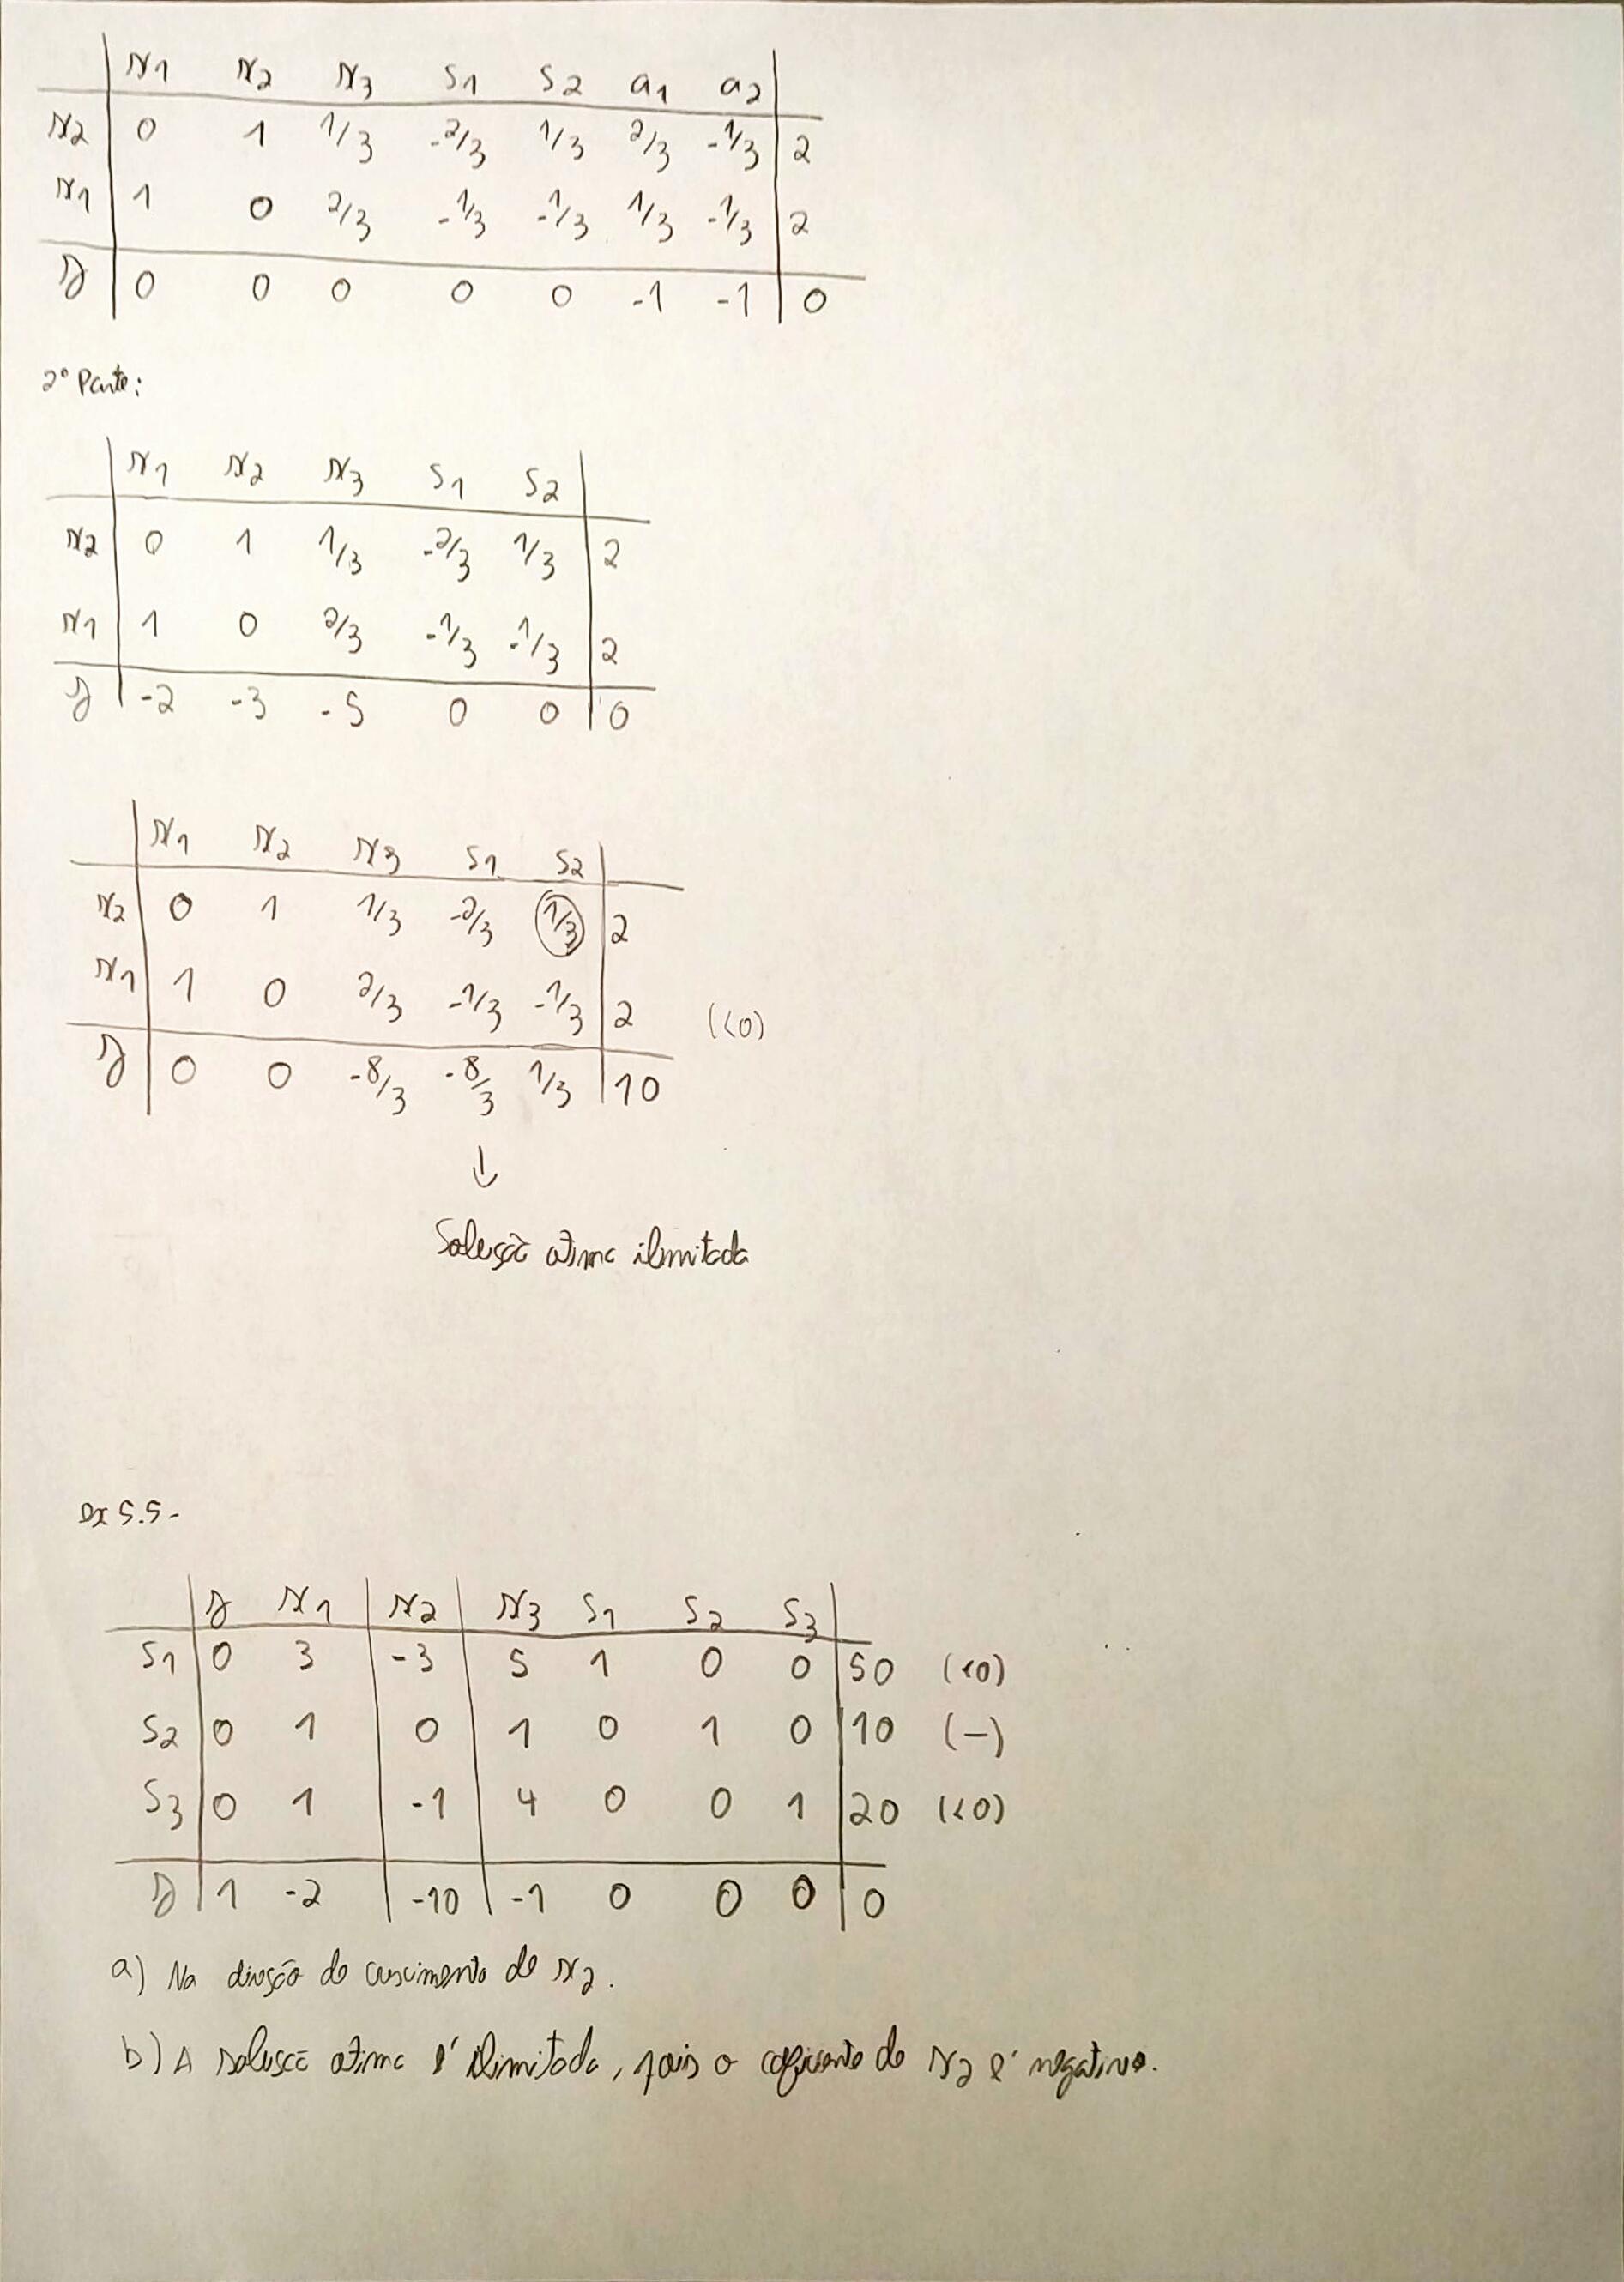 x1 x2 x3 s1 s2 a1 a2
x2 0 1 1/3 -2/3 1/3 2/3 -1/3 2
x1 1 0 2/3 -1/3 -1/3 1/3 -1/3 2
z 0 0 0 0 0 -1 -1 0
2º Parte:
x1 x2 x3 s1 s2
x2 0 1 1/3 -2/3 1/3 2
x1 1 0 2/3 -1/3 -1/3 2
z -2 -3 -5 0 0 0
x1 x2 x3 s1 s2
x2 0 1 1/3 -2/3 1/3 2
x1 1 0 2/3 -1/3 -1/3 2 (<0)
z 0 0 -8/3 -8/3 1/3 10
↓
Solução otima ilimitada
Ex 5.5-
z x1 x2 x3 s1 s2 s3
s1 0 3 -3 5 1 0 0 50 (<0)
s2 0 1 0 1 0 1 0 10 (-)
s3 0 1 -1 4 0 0 1 20 (<0)
z 1 -2 -10 -1 0 0 0 0
a) Na direção de crescimento de x2.
b) A solução otima é ilimitada, pois o coeficiente de x2 é negativo.